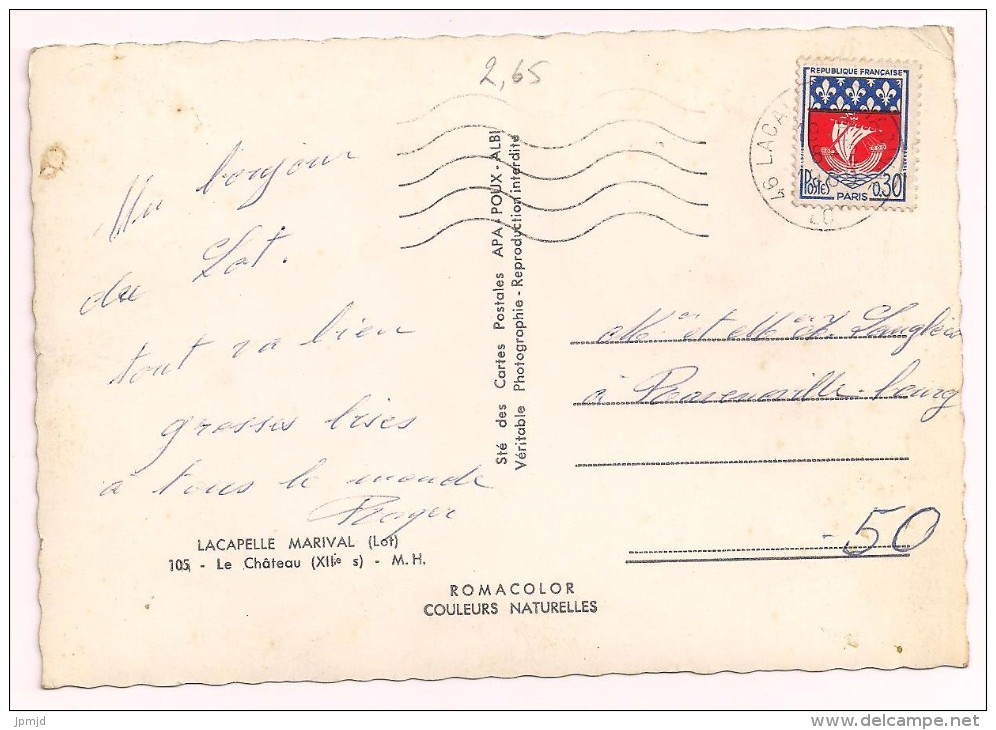 2,65
REPUBLIQUE FRANÇAISE
POSTES PARIS 0.30
46 LACA
LO
Un bonjour
du Lot.
tout va bien
grosses bises
à tous le monde
Roger
Sté des Cartes Postales APA-POUX-ALBI
Véritable Photographie - Reproduction interdite
à Ravenoville-bourg
-50
LACAPELLE MARIVAL (Lot)
105 - Le Château (XIIIe s) - M.H.
ROMACOLOR
COULEURS NATURELLES
jpmjd
www.delcampe.net